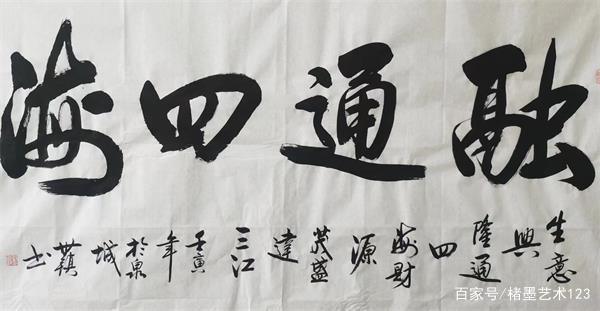 融通四海
生意
興
隆通
四
海财
源
茂盛
達
三江
壬寅
年
於泉
城
书
百家号/楮墨艺术123